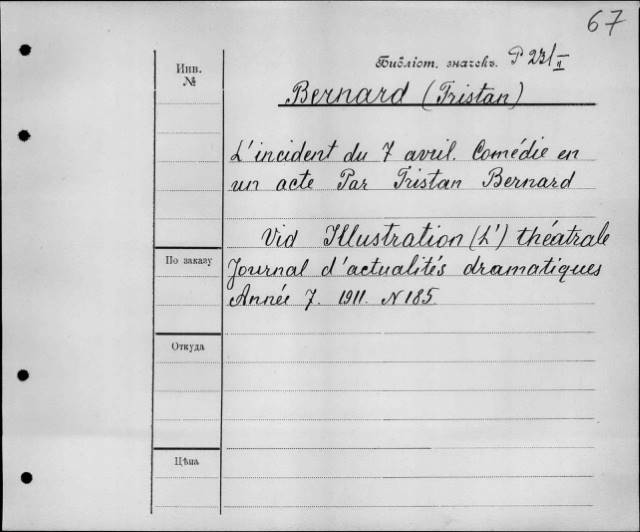 67
Инв.
№
Библіот. значекъ. P 23/II
Bernard (Tristan)
L'incident du 7 avril. Comédie en
un acte Par Tristan Bernard
Vid Illustration (L') théatrale
По заказу
Journal d'actualités dramatiques
Année 7. 1911. N 185.
Откуда
Цѣна